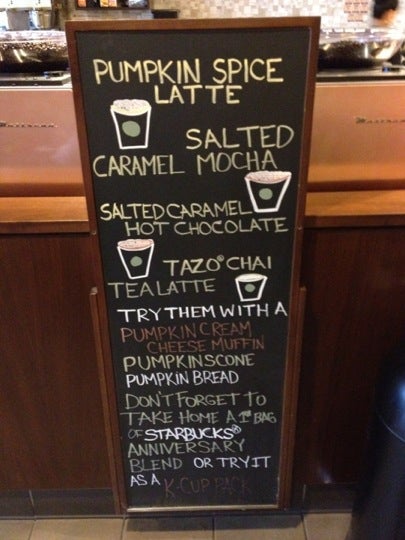 PUMPKIN SPICE
LATTE
SALTED
CARAMEL MOCHA
SALTED CARAMEL
HOT CHOCOLATE
TAZO® CHAI
TEA LATTE
TRY THEM WITH A
PUMPKIN CREAM
CHEESE MUFFIN
PUMPKIN SCONE
PUMPKIN BREAD
DON'T FORGET TO
TAKE HOME A 1LB BAG
OF STARBUCKS®
ANNIVERSARY
BLEND OR TRY IT
AS A K-CUP PACK